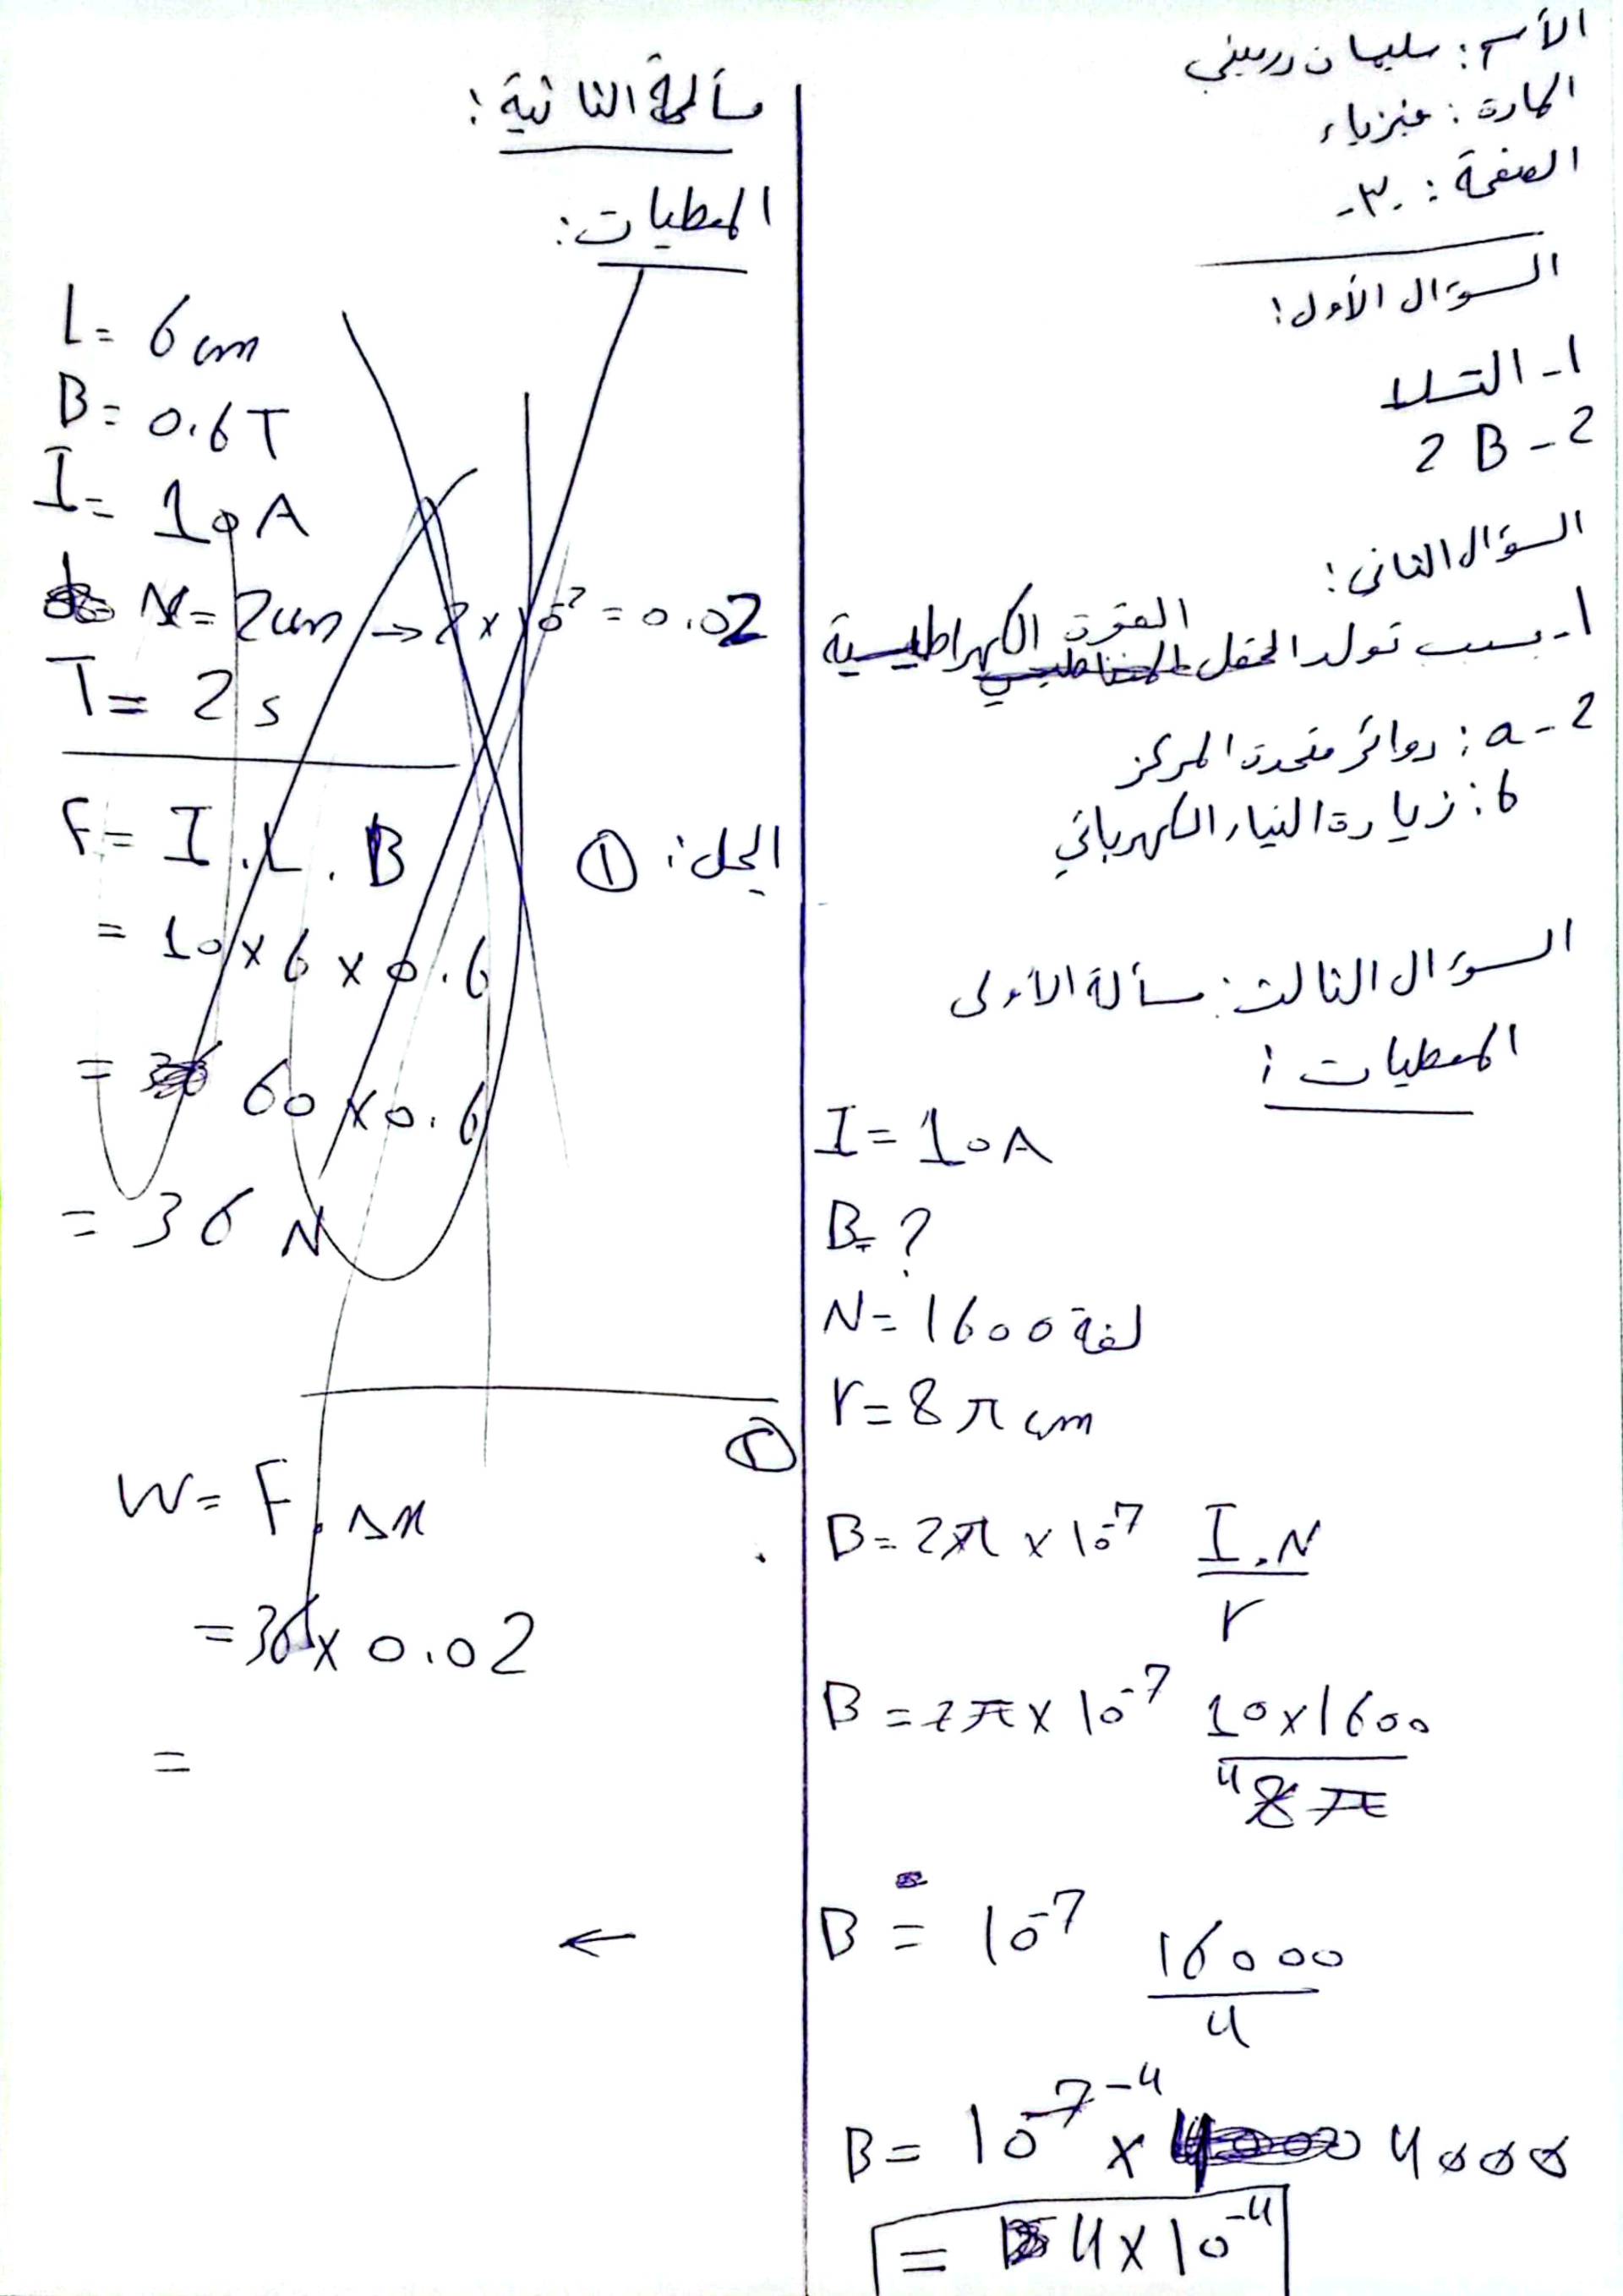 الأسم: سليمان درميني
المادة: فيزياء
الصفحة: -٣-
السؤال الأول:
1- التسلا
2- 2 B
السؤال الثاني:
1- بسبب تولد الحقل القوة الكهرطيسية
2- a: دوائر متحدة المركز
b: زيادة التيار الكهربائي
السؤال الثالث: مسألة الأولى
المعطيات:
I = 10 A
B = ?
N = 1600 لفة
r = 8 π cm
B = 2π × 10⁻⁷ I.N / r
B = 2π × 10⁻⁷ 10×1600 / 8π 4
B = 10⁻⁷ 16000 / 4
B = 10⁻⁷ ⁻⁴ × 4000
= 4 × 10⁻⁴
مسألة الثانية:
المعطيات:
L = 6 cm
B = 0.6 T
I = 10 A
= 2 cm → 2 × 10⁻² = 0.02
T = 2 s
الحل: ①
F = I . L . B
= 10 × 6 × 0.6
= 60 × 0.6
= 36 N
②
W = F . Δx
= 36 × 0.02
=
←